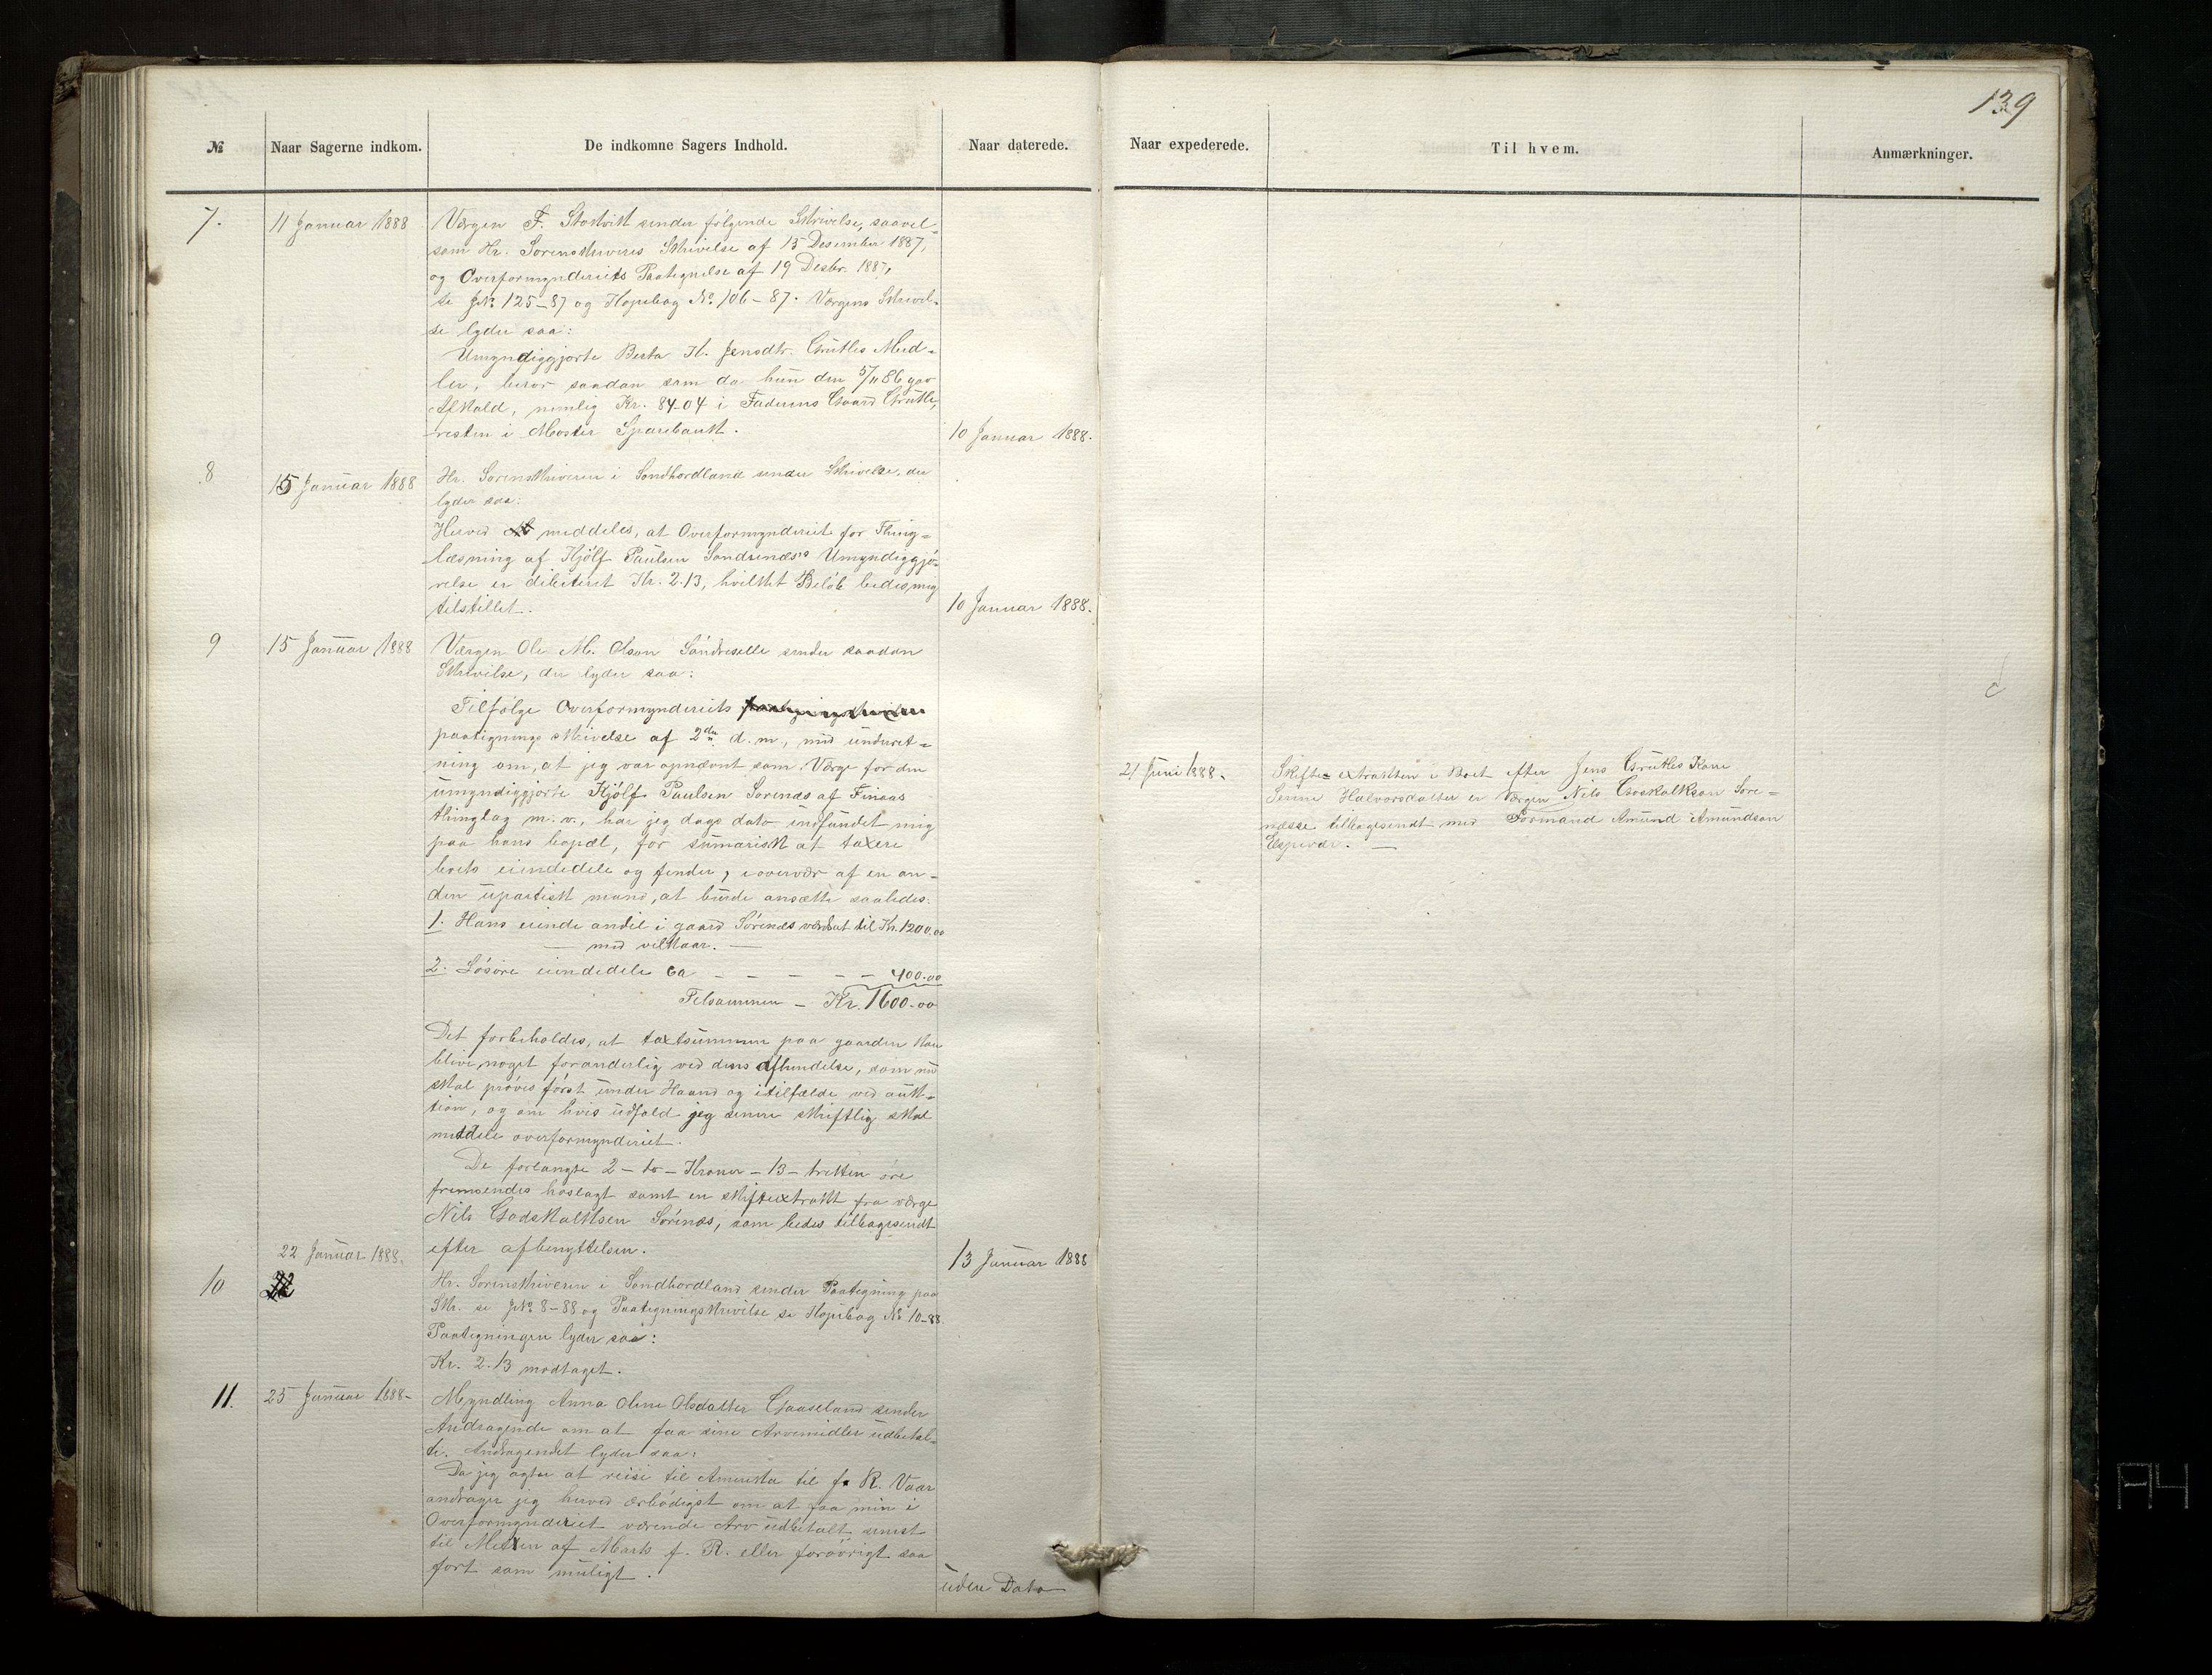 139
№
Naar Sagerne indkom.
De indkomne Sagers Indhold.
Naar daterede.
Naar expederede.
Til hvem.
Anmærkninger.
7.
11 Januar 1888
Værgen F. Stokvik sender følgende Skrivelse, saavel-
som Hr. Sorenskriveres Skrivelse af 15 Desember 1887,
og Overformynderiets Paategnelse af 19 Desbr. 1887,
se J№ 125-87 og Kopibog № 106-87. Værgens Skrivel-
se lyder saa:
Umyndiggjorte Berta H. Jensdtr. Grutles Mid-
ler, beror saadan som da hun den 5/11 86 gav
Afkald, nemlig Kr. 84-04 i Faderens Gaard Grutle,
resten i Moster Sparebank.
10 Januar 1888.
8
15 Januar 1888
Hr. Sorenskriveren i Søndhordland sender Skrivelse, der
lyder saa:
Herved meddeles, at Overformynderiet for Thing-
læsning af Kjølf Paulsen Søndrenæs's Umyndiggjø-
relse er debiteret Kr. 2.13, hvilket Beløb bedes mig
tilstillet.
10 Januar 1888.
9
15 Januar 1888
Værgen Ole M. Olson Søndreselle sender saadan
Skrivelse, der lyder saa:
Tilfølge Overformynderiets
paategnings skrivelse af 2den d. m., med underet-
ning om, at jeg var opnævnt som Værge for den
umyndiggjorte Kjølf Paulsen Sørenæs af Finaas
thinglag m. v., har jeg dags dato indfundet mig
paa hans bopæl, for sumarisk at taxere
boets eiendedele og finder, i overvær af en an-
den upartisk mand, at burde ansætte saaledes:
1. Hans eiende andel i gaard Sørenæs værdsat til Kr. 1200.00
— med vilkaar. —
2. Løsøre eiendedele ca - - - - - 400.00
Tilsammen - Kr. 1600.00
Det forbeholdes, at taxtsummen paa gaarden kan
blive noget foranderlig ved dens afhendelse, som nu
skal prøves først under Haand og i tilfælde ved auk-
tion, og om hvis udfald jeg senere skriftlig skal
meddele overformynderiet.
De forlangte 2 - to - Kroner - 13 - tretten øre
fremsendes hoslagt samt en skifteextrakt fra værge
Nils Godskalksen Sørenæs, som bedes tilbagesendt
efter afbenyttelsen.
13 Januar 1888
21 Juni 1888.
Skifte- extrakten i Boet efter Jens Grutles Kone
Senne Halvorsdatter er Værgen Nils Goskalkson Søre-
næsse tilbagesendt med Formand Amund Amundson
Espevær. —
22 Januar 1888.
10
Hr. Sorenskriveren i Søndhordland sender Paategning paa
Skr. se J№ 8-88 og Paategningsskrivelse se Kopibog № 10-88.
Paategningen lyder saa:
Kr. 2.13 modtaget.
11.
25 Januar 1888-
Myndling Anna Oline Olsdatter Gaaseland sender
Andragende om at faa sine Arvemidler udbetal-
te. Andragendet lyder saa:
Da jeg agter at reise til Amerika til f. R. Vaar
andrager jeg herved ærbødigst om at faa min i
Overformynderiet værende Arv udbetalt senest
til Midten af Marts f. R. eller forøvrigt saa
fort som muligt.
uden Dato